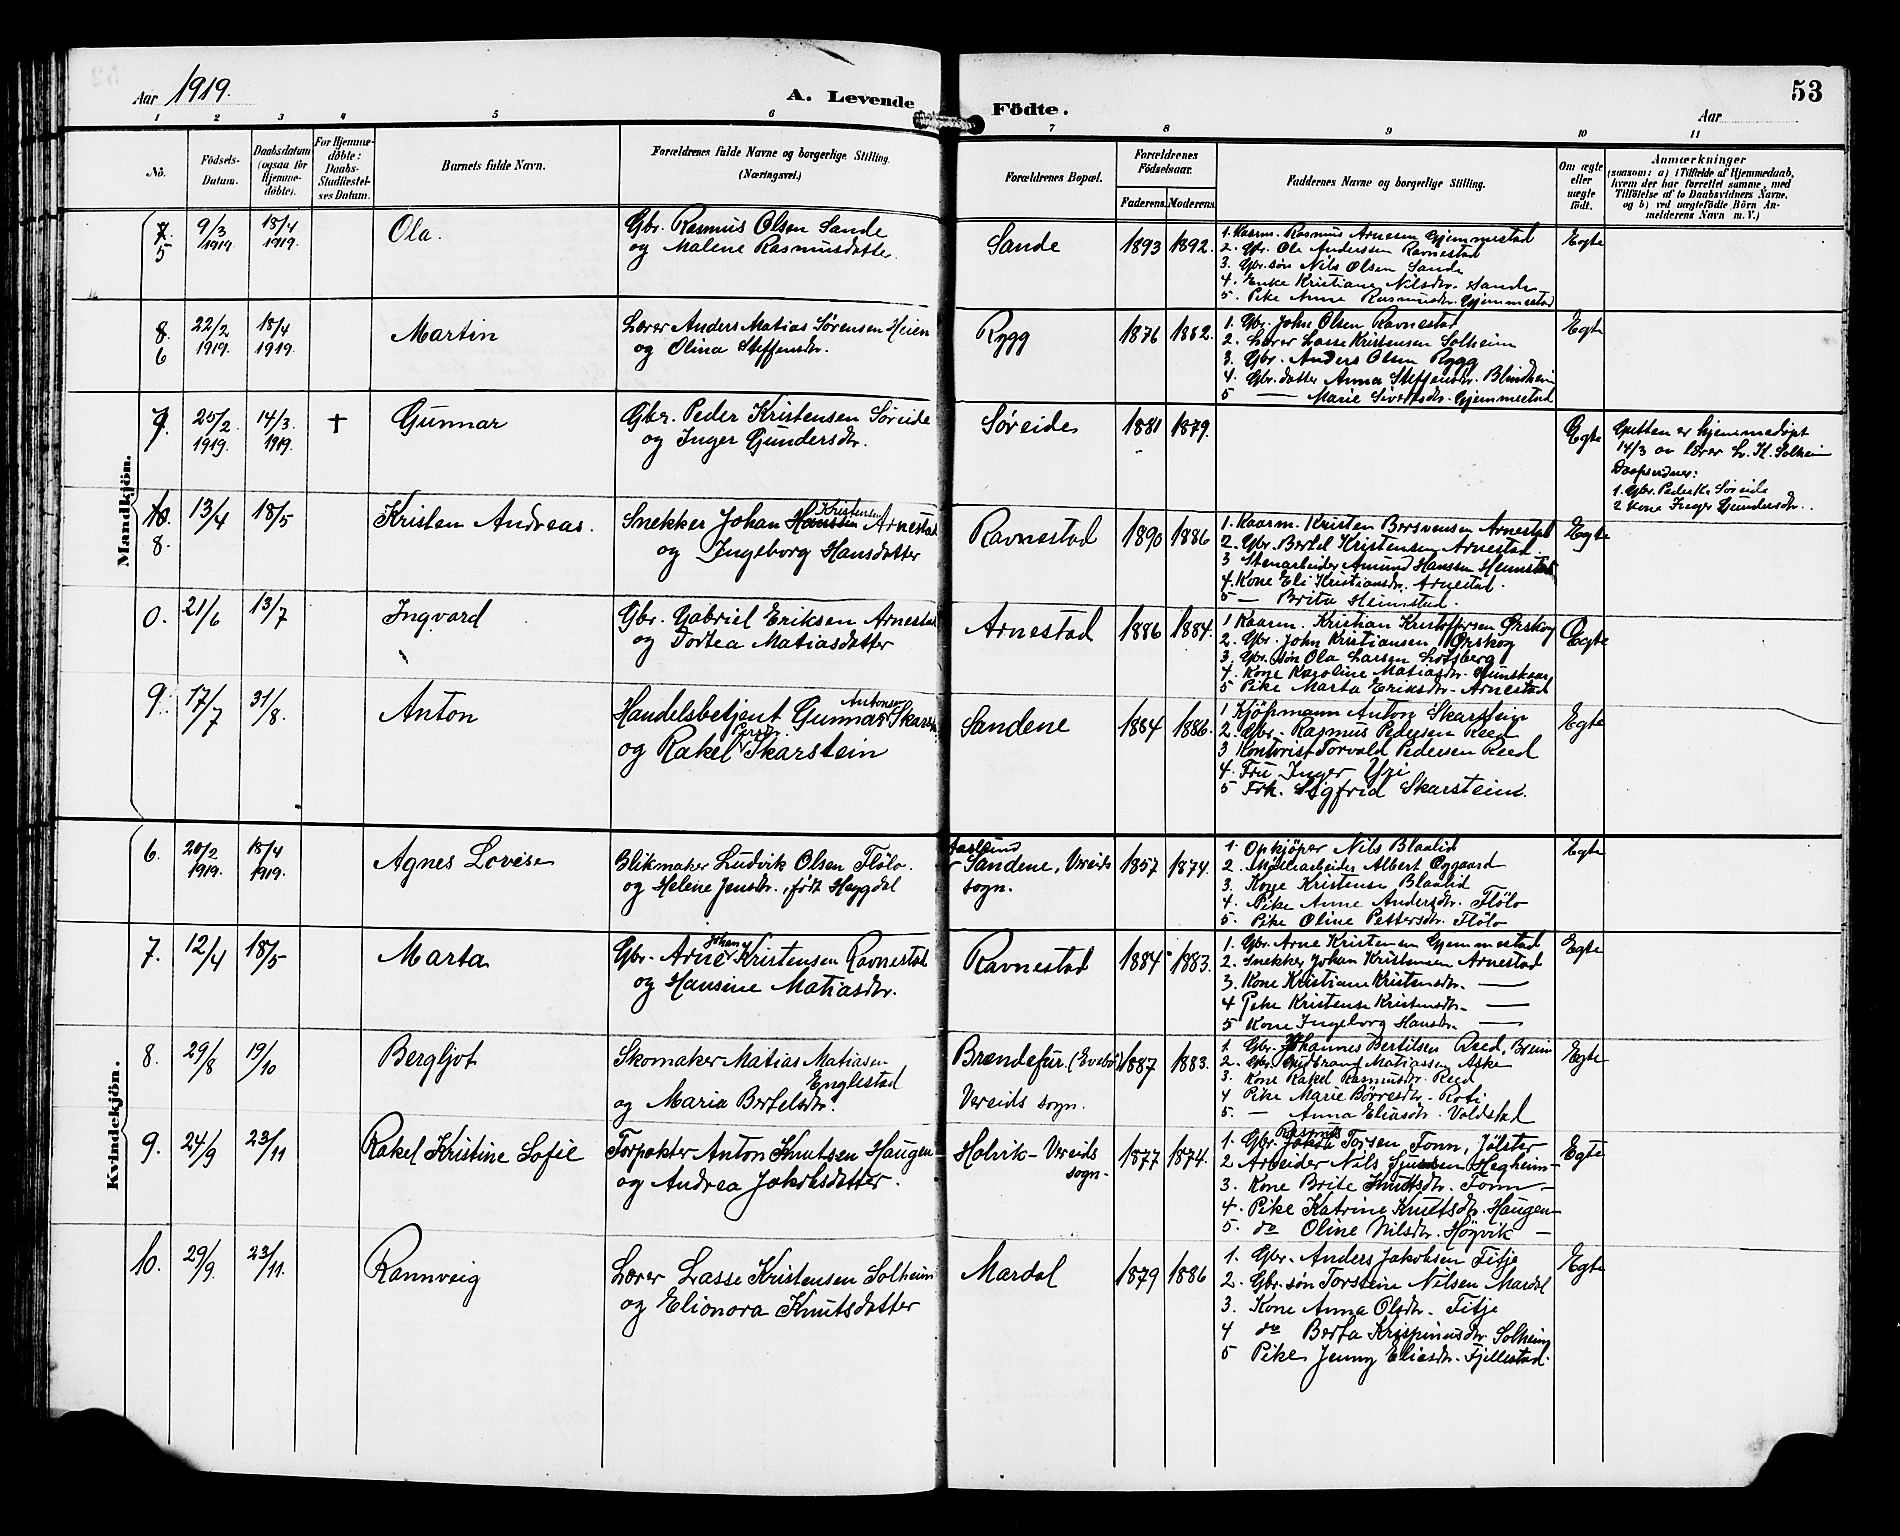 Aar 1919.
A. Levende Födte.
53
Aar
1 2 3 4 5 6 7 8 9 10 11
No.
Födsels-Datum.
Daabsdatum (ogsaa for Hjemme-döbte).
For Hjemme-döbte: Daabs-Stadfæstel-ses Datum.
Barnets fulde Navn.
Forældrenes fulde Navne og borgerlige Stilling. (Næringsvei.)
Forældrenes Bopæl.
Forældrenes Födselsaar.
Faderens. Moderens.
Faddernes Navne og borgerlige Stilling.
Om ægte eller uægte födt.
Anmærkninger
(saasom: a) i Tilfælde af Hjemmedaab, hvem der har forrettet samme, med Tilföielse af to Daabsvidners Navne, og b) ved uægtefödte Börn An-melderens Navn m. V.)
Mandkjön.
7. 5
9/3 1919.
18/4 1919.
Ola.
Gbr. Rasmus Olsen Sande
og Malene Rasmusdatter.
Sande
1893 1892.
1. Kaarm. Rasmus Arnesen Gjemmestad
2. Gbr. Ole Anderssen Ravnestad
3. Gbr.søn Nils Olsen Sande
4. Enke Kristiane Nilsdtr. Sande
5. Pike Anne Rasmusdtr. Gjemmestad
Egte
8. 6
22/2 1919.
18/4 1919.
Martin
Lærer Anders Matias Sørensen Heien
og Olina Steffensdtr.
Rygg
1876 1882.
1. Gbr. John Olsen Ravnestad
2. Lærer Lasse Kristensen Solheim
3. Gbr. Anders Olsen Rygg
4. Gbr.datter Anna Steffensdtr. Blindheim
5 — Marie Sivertsdtr. Gjemmestad
Egte
7.
25/2 1919.
14/3. 1919.
†
Gunnar
Gbr. Peder Kristensen Søreide
og Inger Gundersdtr.
Søreide
1881 1879.
Egte
Gutten er hjemmedøpt
14/3 av lærer L. K. Solheim
Daapsvidner:
1. Gbr. Peder Kr. Søreide
2 Kone Inger Gundersdtr.
10. 8.
13/4
18/5
Kristen Andreas.
Snekker Johan Hanssen Kristensen Arnestad
og Ingeborg Hansdatter
Ravnestad
1890 1886
1. Kaarm. Kristen Bersvensen Arnestad
2. Gbr. Bertel Kristensen Arnestad
3 Stenarbeider Amund Hanssen Heimstad
4. Kone Eli Kristiansdtr. Arnestad.
5 — Brita Heimstad.
Egte
0.
21/6
13/7
Ingvard
Gbr. Gabriel Eriksen Arnestad
og Dortea Matiasdatter
Arnestad
1886 1884.
1 Kaarm. Kristian Kristoffersen Ørskog
2. Gbr. John Kristiansen Ørskog
3. Gbr.søn Ola Larsen Lotsberg
4. Kone Karoline Matiasdtr. Hunskaar
5 Pike Marta Eriksdtr. Arnestad
Egte
9.
17/7
31/8.
Anton
Handelsbetjent Gunnar Antonsen Skarst
og Rakel Persdr. Skarstein
Sandene
1884 1886.
1 Kjøpmann Anton Skarstein
2. Gbr. Rasmus Pedersen Reed
3 Kontorist Torvald Pedersen Reed
4. Fru Inger Yri
5 Frk. Sigfrid Skarstein.
Egte
Kvindekjön.
6.
20/2 1919.
18/4 1919.
Agnes Lovise
Blikmaker Ludvik Olsen Flölo.
og Helene Jensdtr., født Haggdal
Sandene, Vereids
sogn.
1857 1874.
1. Opkjøper Nils Blaalid
2. Møllearbeider Albert Øygaard
3. Kone Kristense Blaalid
4. Pike Anne Andersdtr. Flölo
5. Pike Oline Pettersdtr. Flölo
Egte
7.
12/4
18/5
Marta
Gbr. Arne Johan Kristensen Ravnestad
og Hansine Matiasdtr.
Ravnestad
1884 1883.
1. Gbr. Arne Kristensen Gjemmestad
2. Snekker Johan Kristensen Arnestad
3. Kone Kristiane Kristensdtr. —
4 Pike Kristense Kristensdtr. —
5 Kone Ingeborg Hansdr. —
Egte
8.
29/8
19/10
Bergljot
Skomaker Matias Matiasen
Englestad
og Maria Bertelsdtr.
Brændefur. (Evebø)
Vereids sogn.
1887 1883.
1. Gbr. Johannes Bertilsen Reed, Breim
2. Gbr. Gudbrand Matiassen Aske
3. Kone Rakel Rasmusdtr. Reed
4 Pike Marie Børresdtr. Roti
5. — Anna Eliasdtr. Voldstad
Egte
9.
24/9
23/11
Rakel Kristine Sofie
Forpakter Anton Knutsen Haugen
og Andrea Jakobsdatter.
Holvik - Vereids
sogn.
1877 1874.
1. Gbr. Rasmus Torsen Fonn, Jölster
2 Arbeider Nils Hegheim —
3. Kone Brite Knutsdtr. Fonn —
4. Pike Katrine Knutsdtr. Haugen
5. do Oline Nilsdtr. Högvik —
Egte
10.
29/9.
23/11.
Rannveig
Lærer Lasse Kristensen Solheim
og Elionora Knutsdatter
Mardal
1879 1886
1. Gbr. Anders Jakobsen Fitje
2. Gbr.søn Torstein Nilsen Mardal
3. Kone Anna Olsdtr. Fitje
4 do Berta Krispinusdtr. Solheim
5 Pike Jenny Eliasdtr. Fjellestad.
Egte